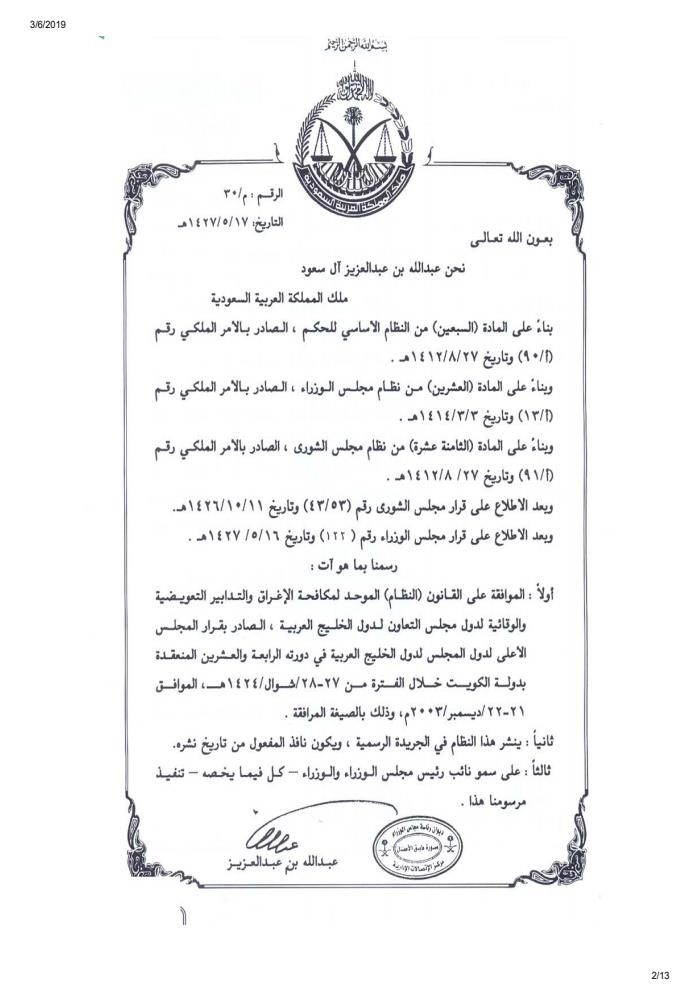 3/6/2019
بسم الله الرحمن الرحيم
ملك المملكة العربية السعودية
الرقم : م/٣٠
التاريخ: ١٤٢٧/٥/١٧هـ
بعون الله تعالى
نحن عبدالله بن عبدالعزيز آل سعود
ملك المملكة العربية السعودية
بناءً على المادة (السبعين) من النظام الأساسي للحكم ، الصادر بالأمر الملكي رقم
(أ/٩٠) وتاريخ ١٤١٢/٨/٢٧هـ .
وبناءً على المادة (العشرين) من نظام مجلس الوزراء ، الصادر بالأمر الملكي رقم
(أ/١٣) وتاريخ ١٤١٤/٣/٣هـ .
وبناءً على المادة (الثامنة عشرة) من نظام مجلس الشورى ، الصادر بالأمر الملكي رقم
(أ/٩١) وتاريخ ٢٧/ ١٤١٢/٨هـ .
وبعد الاطلاع على قرار مجلس الشورى رقم (٤٣/٥٣) وتاريخ ١٤٢٦/١٠/١١هـ.
وبعد الاطلاع على قرار مجلس الوزراء رقم ( ١٢٢) وتاريخ ١٦/٥/ ١٤٢٧هـ .
رسمنا بما هو آت :
أولاً : الموافقة على القانون (النظام) الموحد لمكافحة الإغراق والتدابير التعويضية
والوقائية لدول مجلس التعاون لدول الخليج العربية ، الصادر بقرار المجلس
الأعلى لدول المجلس لدول الخليج العربية في دورته الرابعة والعشرين المنعقدة
بدولة الكويت خلال الفترة من ٢٧-٢٨/شوال/١٤٢٤هـ، الموافق
٢١-٢٢/ديسمبر/٢٠٠٣م، وذلك بالصيغة المرافقة .
ثانياً : ينشر هذا النظام في الجريدة الرسمية ، ويكون نافذ المفعول من تاريخ نشره.
ثالثاً : على سمو نائب رئيس مجلس الوزراء والوزراء – كل فيما يخصه – تنفيذ
مرسومنا هذا .
ديوان رئاسة مجلس الوزراء
صورة طبق الأصل
مركز الاتصالات الإدارية
عبدالله بن عبدالعزيز
2/13